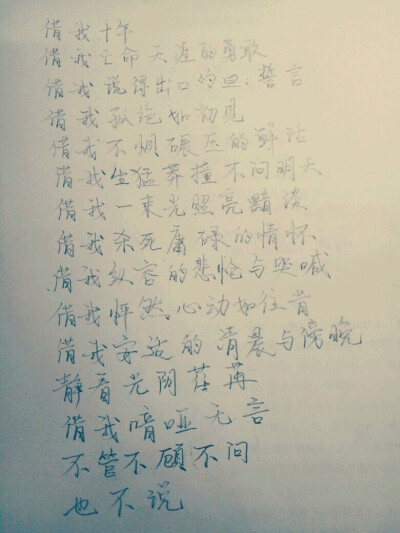 借我十年
借我亡命天涯的勇敢
借我说得出口的旦旦誓言
借我孤绝如初见
借我不惧碾压的鲜活
借我生猛莽撞不问明天
借我一束光照亮黯淡
借我杀死庸碌的情怀
借我纵容的悲怆与哭喊
借我怦然心动如往昔
借我安适的清晨与傍晚
静看光阴荏苒
借我喑哑无言
不管不顾不问
也不说